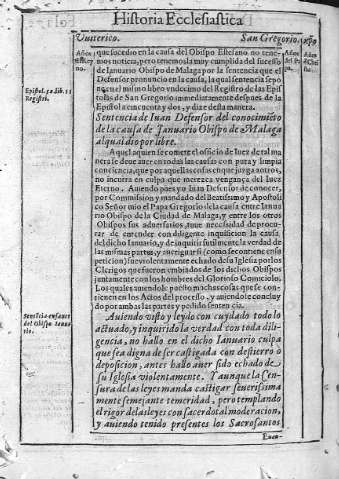 Historia Ecclesiastica
Vuiterico.
San Gregorio.
que sucedio en la causa del Obispo Estefano no tene-
mos noticia, pero tenemos la muy cumplida del sucesso
de Ianuario Obispo de Malaga por la sentencia que el
Defensor pronuncio en la causa, la qual sentencia se po
ne en el mismo libro vndecimo del Registro de las Epis
tolas de San Gregorio immediatamente despues de la
Epistola cincuenta y dos, y dize desta manera.
Epistol. 52. lib. 11
Registri.
Sentencia de Iuan Defensor del conocimiẽto
de la causa de Ianuario Obispo de Malaga
al qual dio por libre.
Aquel a quien se comete el officio de Iuez de tal ma
nera se deue auer en todas las causas con pura y limpia
conciencia, que por aquellas cosas en que juzga a otros,
no incurra en culpa que merezca vengança del Iuez
Eterno. Auiendo pues yo Iuan Defensor de conocer,
por Commission y mandado del Beatissimo y Apostoli
co Señor mio el Papa Gregorio de la causa entre Ianua
rio Obispo de la Ciudad de Malaga, y entre los otros
Obispos sus aduersarios, tuue necessidad de procu-
rar de entender con diligente inquisicion la causa
del dicho Ianuario, y de inquirir sutilmente la verdad de
las mismas partes, y aueriguar si (como se contiene en su
peticion) fue violentamente echado de su Iglesia por los
Clerigos que fueron combidos de los dichos Obispos
juntamente con los hombres del Glorioso Comiciolo.
Los quales auiendose puesto muchas cosas que se con-
tienen en los Actos del processo, y auiendose concluy
do por ambas las partes y pedido sentencia.
Sentẽcia en fauor
del Obispo Ianua
rio.
Auiendo visto y leydo con cuydado todo lo
actuado, y inquirido la verdad con toda dili-
gencia, no hallo en el dicho Ianuario culpa
que sea digna de ser castigada con destierro ò
deposicion, antes hallo auer sido echado de
su Iglesia violentamente. Y aunque la Cen-
sura de las leyes manda castigar seuerissima
mente semejante temeridad, pero templando
el rigor de las leyes con sacerdotal moderacion,
y auiendo tenido presentes los Sacrosantos
Euan-